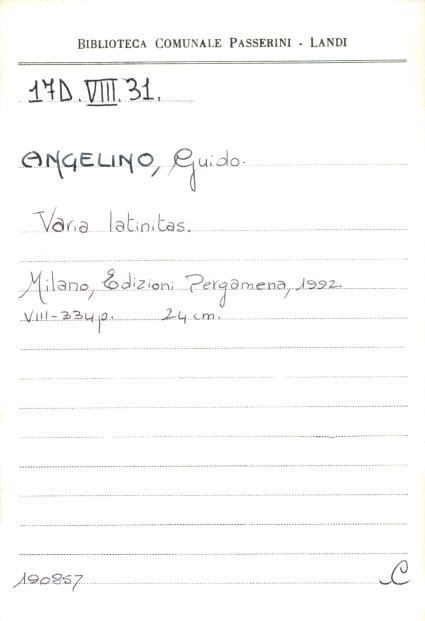 BIBLIOTECA COMUNALE PASSERINI - LANDI
17D.VIII.31.
ANGELINO, Guido.
Varia latinitas.
Milano, Edizioni Pergamena, 1992.
VIII-334p. 24 cm.
190857 C